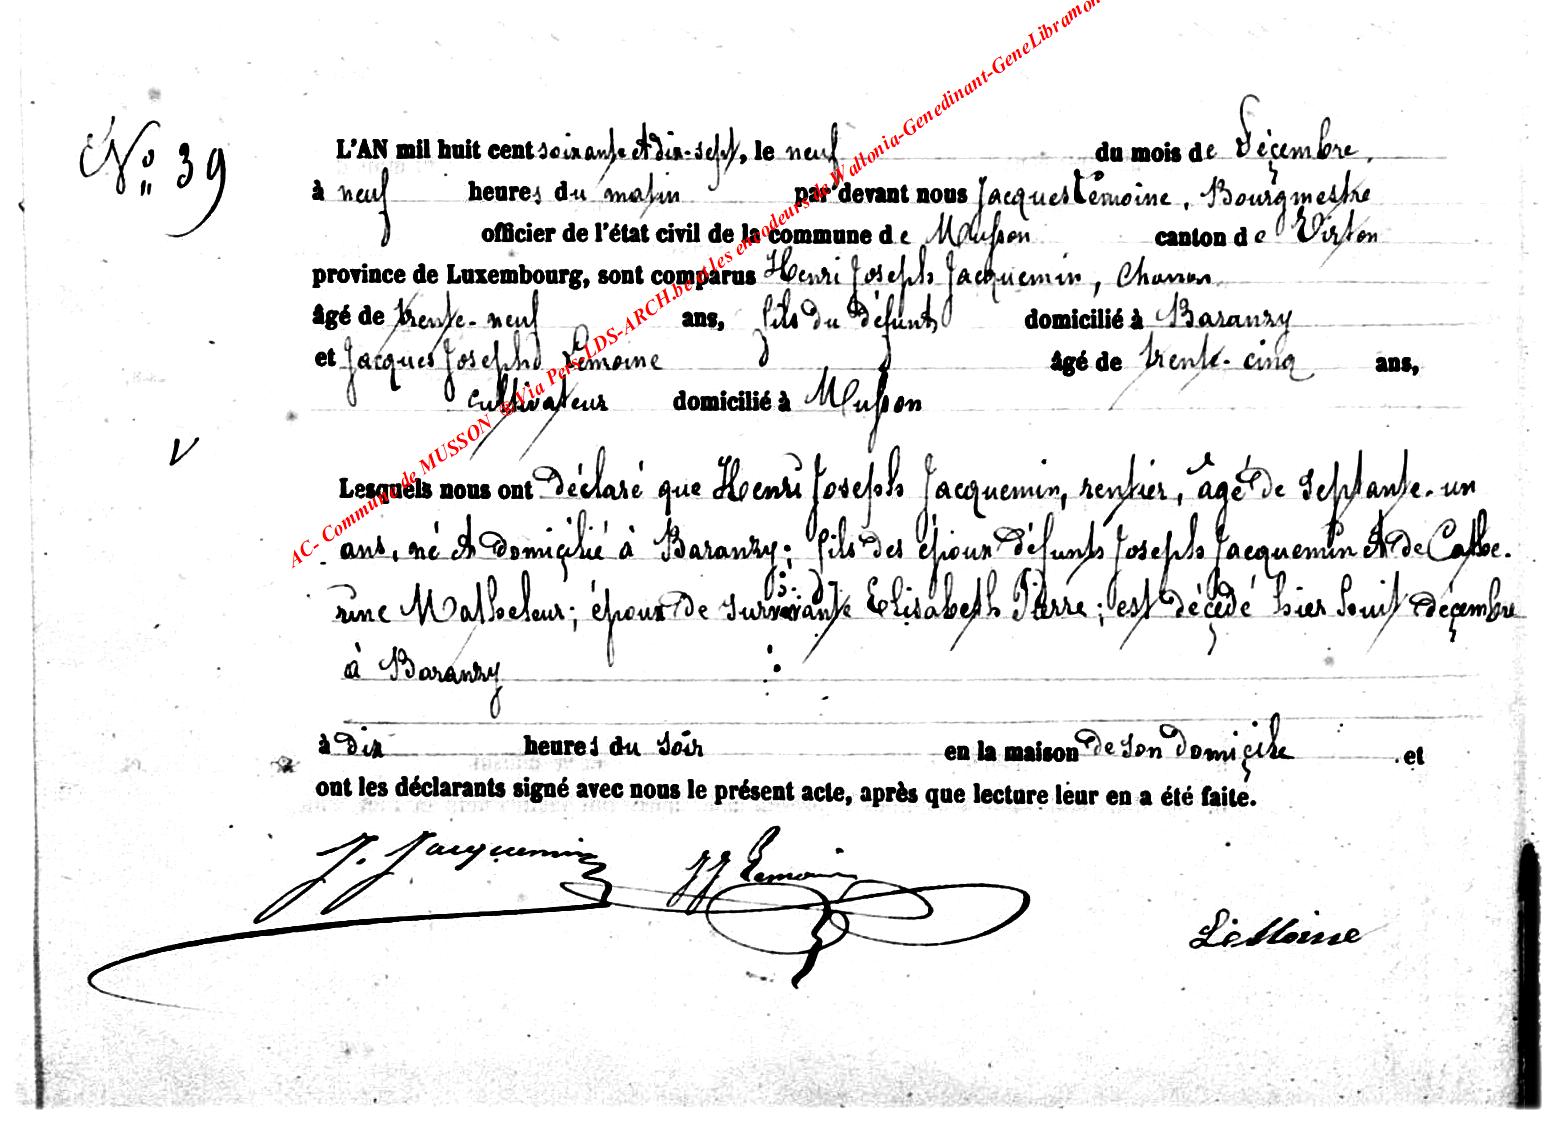 N° 39
L'AN mil huit cent soixante et dix-sept, le neuf du mois de Décembre,
à neuf heures du matin par devant nous Jacques Lemoine, Bourgmestre
officier de l'état civil de la commune de Musson canton de Virton
province de Luxembourg, sont comparus Henri Joseph Jacquemin, Charron
âgé de trente-neuf ans, fils du défunt domicilié à Baranzy
et Jacques Joseph Lemoine âgé de trente-cinq ans,
cultivateur domicilié à Musson
V
Lesquels nous ont déclaré que Henri Joseph Jacquemin, rentier, âgé de septante-un
ans, né et domicilié à Baranzy; fils des époux défunts Joseph Jacquemin et de Cathe-
rine Matheleur; époux de survivante Elisabeth Pierre; est décédé hier huit décembre
à Baranzy
à dix heures du soir en la maison de son domicile et
ont les déclarants signé avec nous le présent acte, après que lecture leur en a été faite.
J. Jacquemin JJ Lemoine
LeMoine
AC- Commune de MUSSON Via Pers.LDS-ARCH.be et les encodeurs de Wallonia-Genedinant-GeneLibramon